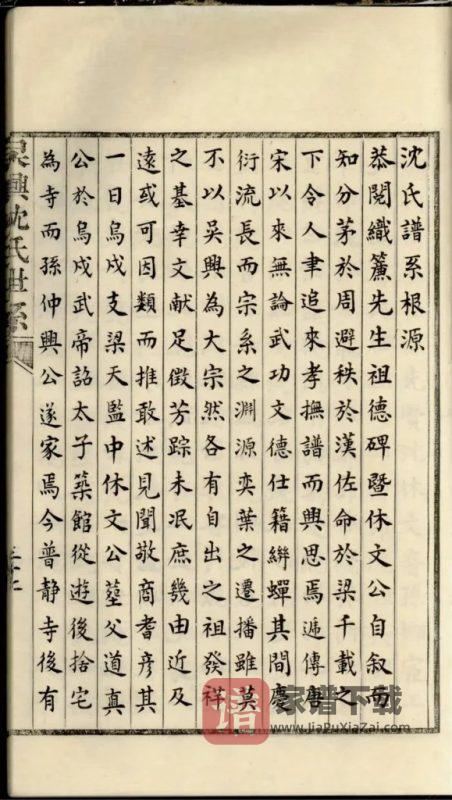 沈氏譜系根源
恭閱織簾先生祖德碑暨休文公自叙而
知分茅於周避秩於漢佐命於梁千載之
下令人聿追來孝撫譜而興思焉遞傳唐
宋以來無論武功文德仕籍綿蟬其間慶
衍流長而宗系之淵源奕葉之遷播雖莫
不以吳興為大宗然各有自出之祖發祥
之基幸文献足徵芳踪未泯庶幾由近及
遠或可因類而推敢述見聞敬商耆彦其
一曰烏戍支梁天監中休文公塟父道真
公於烏戍武帝詔太子築館從遊後捨宅
為寺而孫仲興公遂家焉今普静寺後有
吳興沈氏世系
家谱下载
www.JiaPuXiaZai.com
谱